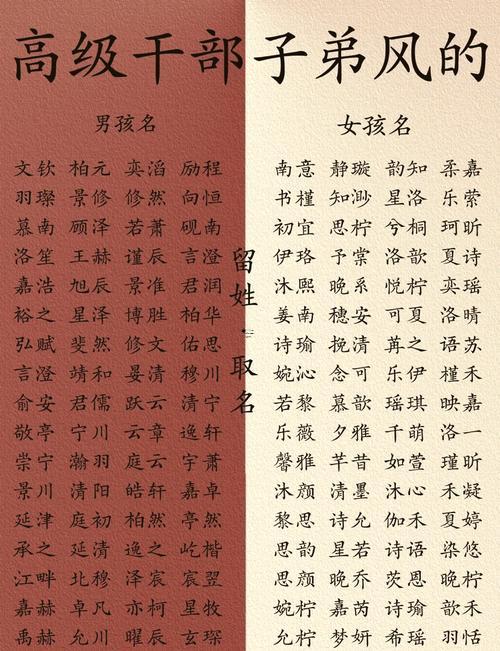 高级干部子弟风的
男孩名
女孩名
文钦 柏元 奕滔 励程
羽璨 景修 修然 向恒
慕南 顾泽 若萧 砚南
洛笙 王赫 谨辰 言澄
嘉浩 旭辰 景准 君润
裕之 星泽 博胜 柏华
弘赋 斐然 修文 佑思
言澄 靖和 晏清 穆川
俞安 君儒 跃云 清宁
敬亭 宁川 云章 逸轩
崇宁 瀚羽 庭云 宇萧
景川 清阳 皓轩 嘉卓
延津 庭初 柏然 亭然
承之 延清 逸之 屹楷
江畔 北穆 泽宸 宸翌
嘉赫 卓凡 亦柯 星牧
禹赫 允川 曜辰 玄琛
留姓
取名
南意 静璇 韵知 柔嘉
书槿 知渺 星洛 乐萦
初宜 思柠 兮桐 珂昕
伊珞 予棠 洛歆 夏诗
沐熙 晚系 悦柠 奕瑶
姜南 穗安 可夏 洛晴
诗瑜 挽清 苒之 语苏
婉沁 念可 乐伊 槿禾
若黎 慕歆 瑶琪 映嘉
乐薇 夕雅 千萌 洛一
馨雅 芊昔 如萱 瑾昕
沐颜 清墨 沐心 禾凝
黎思 诗允 伽禾 夏婷
思韵 星若 诗语 染悠
思颜 晚乔 茨恩 晚柠
婉柠 嘉芮 诗瑜 歆禾
允柠 梦妍 希瑶 羽恬